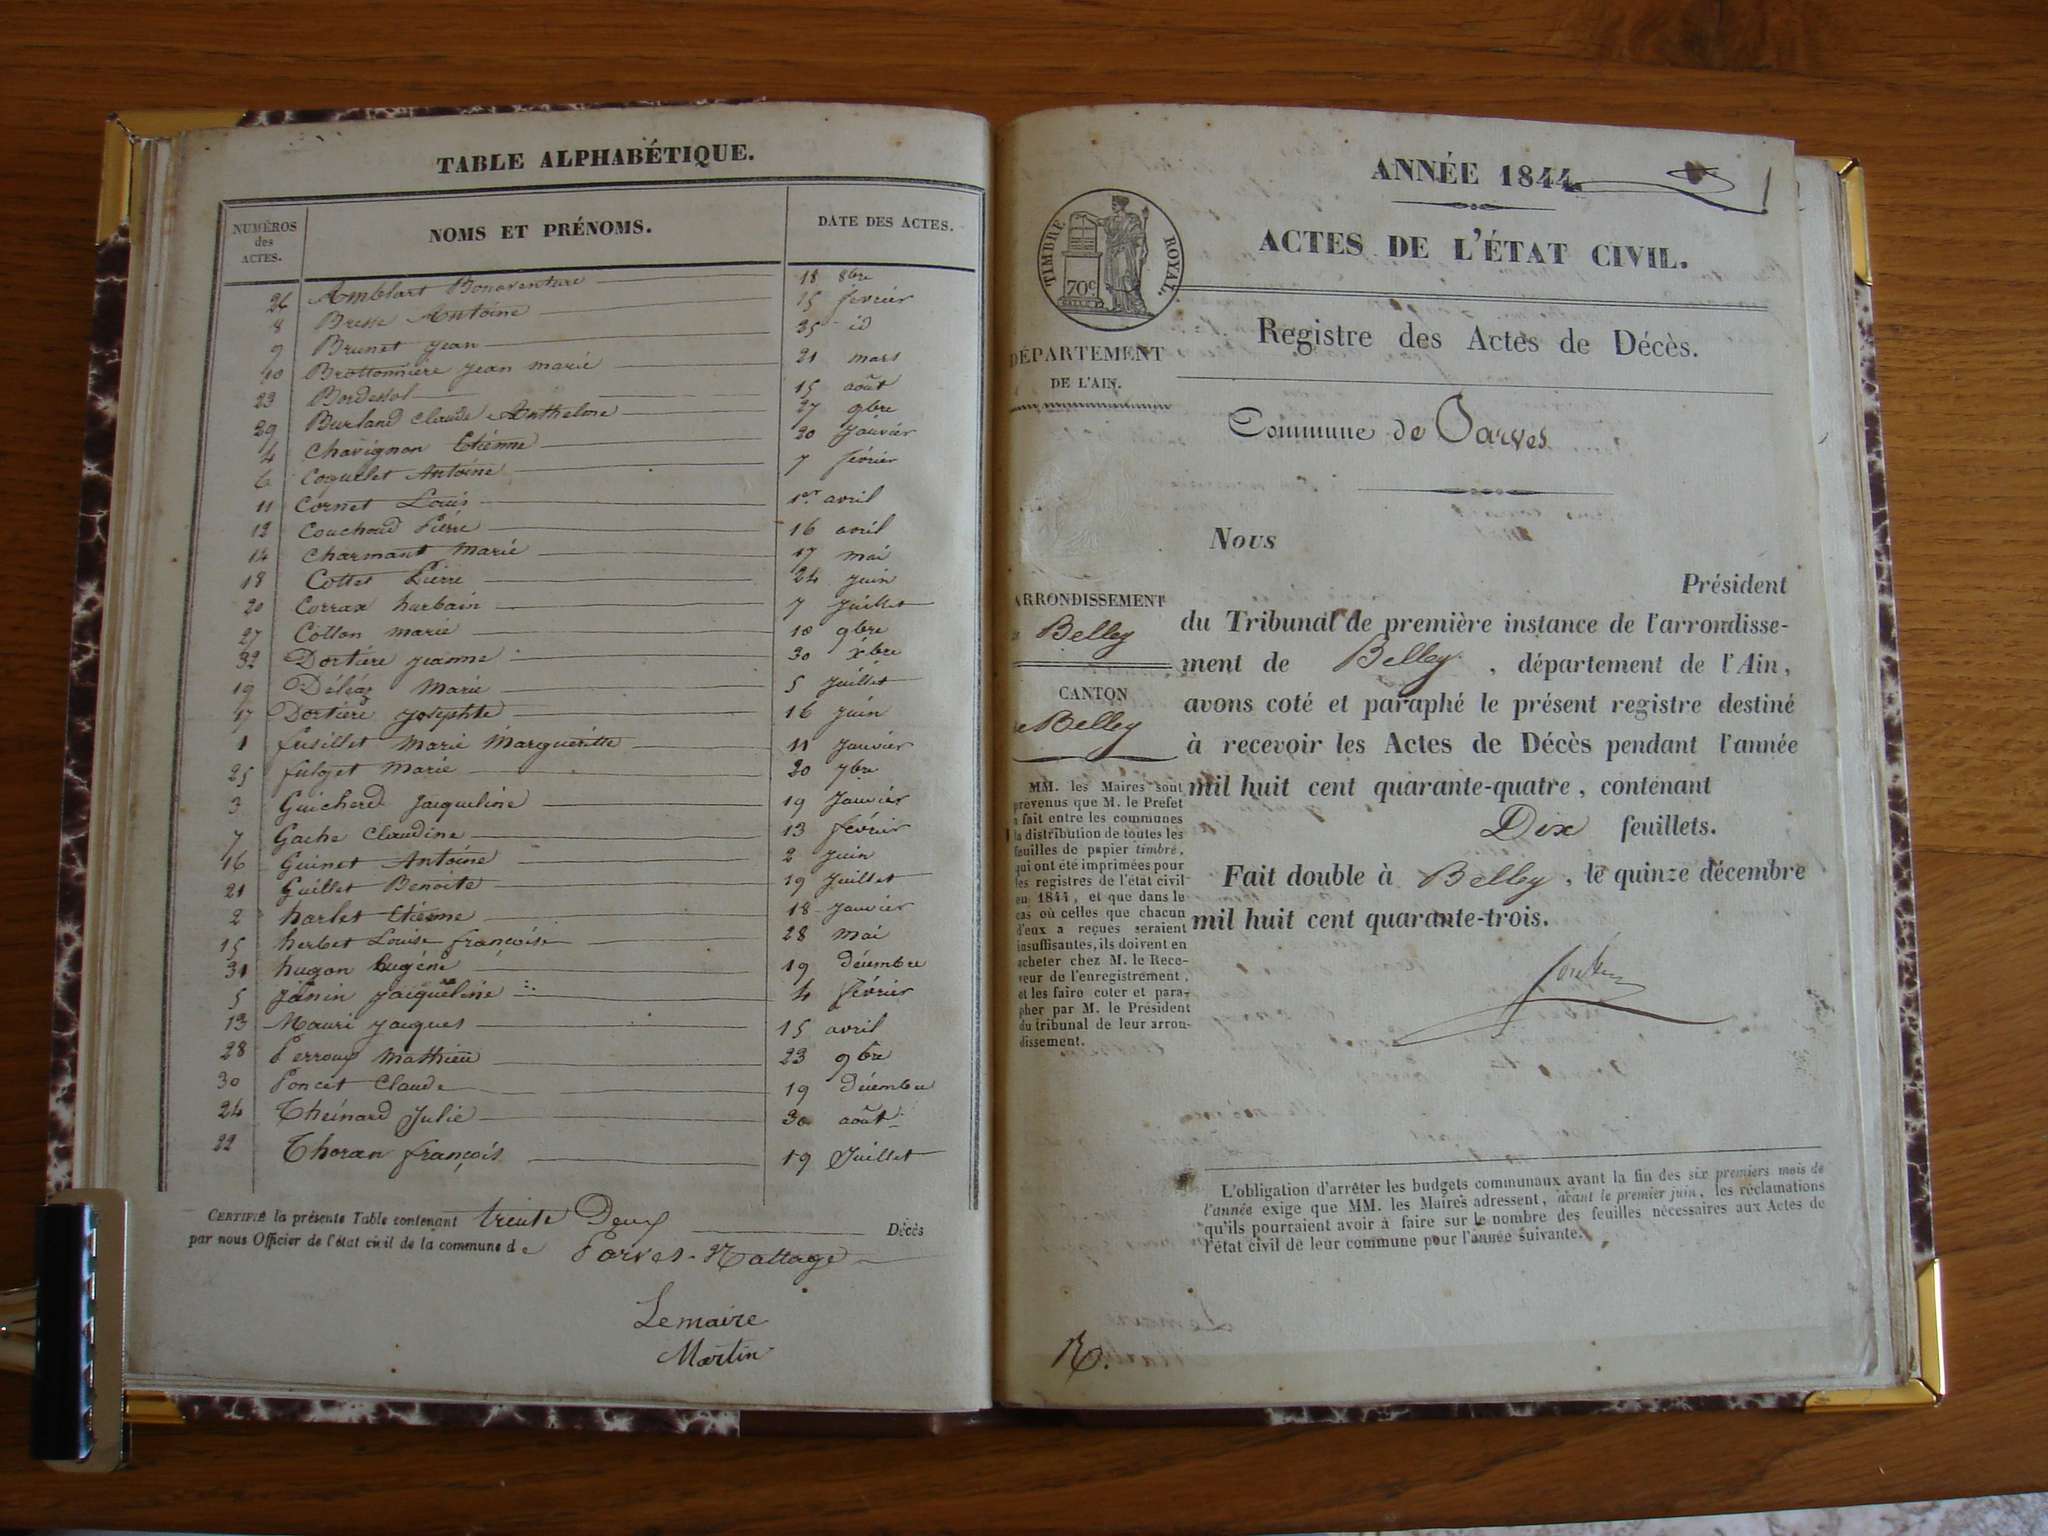 TABLE ALPHABÉTIQUE.
NUMÉROS des ACTES. NOMS ET PRÉNOMS. DATE DES ACTES.
26 Amblart Bonaventure 18 8bre
8 Bresse Antoine 15 fevrier
9 Brunet jean 25 id
10 Brottonnière jean marie 21 mars
23 Bordessol 15 août
29 Burland Claude Anthelme 27 9bre
4 Chavignon Etiénne 20 janvier
6 Coquelet Antoine 7 février
11 Cornet Louis 1er avril
12 Couchoud Piérre 16 avril
14 Charmant Marié 17 mai
18 Cottet Pierre 24 juin
20 Corrax hurbain 7 juillet
27 Cotton marie 18 9bre
32 Dortière jeanne 30 xbre
19 Déléaz Marie 5 juillet
17 Dortière josephte 16 juin
1 fusillet Marie Margueritte 11 janvier
25 fulget Marie 20 7bre
3 Guicherd jacqueline 19 janvier
7 Gache Claudine 13 février
16 Guinet Antoine 2 juin
21 Guillet Benoite 19 juillet
2 harlet Etiénne 18 janvier
15 herbet Louise françoise 28 mai
31 hugon Eugéne 19 décembre
5 janin jacqueline 4 février
13 Mauri jacques 15 avril
28 Perroux Mathieu 23 9bre
30 Poncet Claude 19 décembre
24 Theinard Julie 30 août
22 Thoran françois 19 Juillet
CERTIFIÉ la présente Table contenant trente Deux Décès
par nous Officier de l'état civil de la commune de Parves-Nattage
Lemaire
Martin
ANNÉE 1844.
TIMBRE ROYAL.
70c
ACTES DE L'ÉTAT CIVIL.
Registre des Actes de Décès.
DÉPARTEMENT
DE L'AIN.
Commune de Parves
ARRONDISSEMENT
Belley
CANTON
de Belley
MM. les Maires sont
prévenus que M. le Préfet
a fait entre les communes
la distribution de toutes les
feuilles de papier timbré,
qui ont été imprimées pour
les registres de l'état civil
en 1844, et que dans le
cas où celles que chacun
d'eux a reçues seraient
insuffisantes, ils doivent en
acheter chez M. le Rece-
veur de l'enregistrement,
et les faire coter et para-
pher par M. le Président
du tribunal de leur arron-
dissement.
Nous
Président
du Tribunal de première instance de l'arrondisse-
ment de Belley, département de l'Ain,
avons coté et paraphé le présent registre destiné
à recevoir les Actes de Décès pendant l'année
mil huit cent quarante-quatre, contenant
Dix feuillets.
Fait double à Belley, le quinze décembre
mil huit cent quarante-trois.
L'obligation d'arrêter les budgets communaux avant la fin des six premiers mois de
l'année exige que MM. les Maires adressent, avant le premier juin, les réclamations
qu'ils pourraient avoir à faire sur le nombre des feuilles nécessaires aux Actes de
l'état civil de leur commune pour l'année suivante.